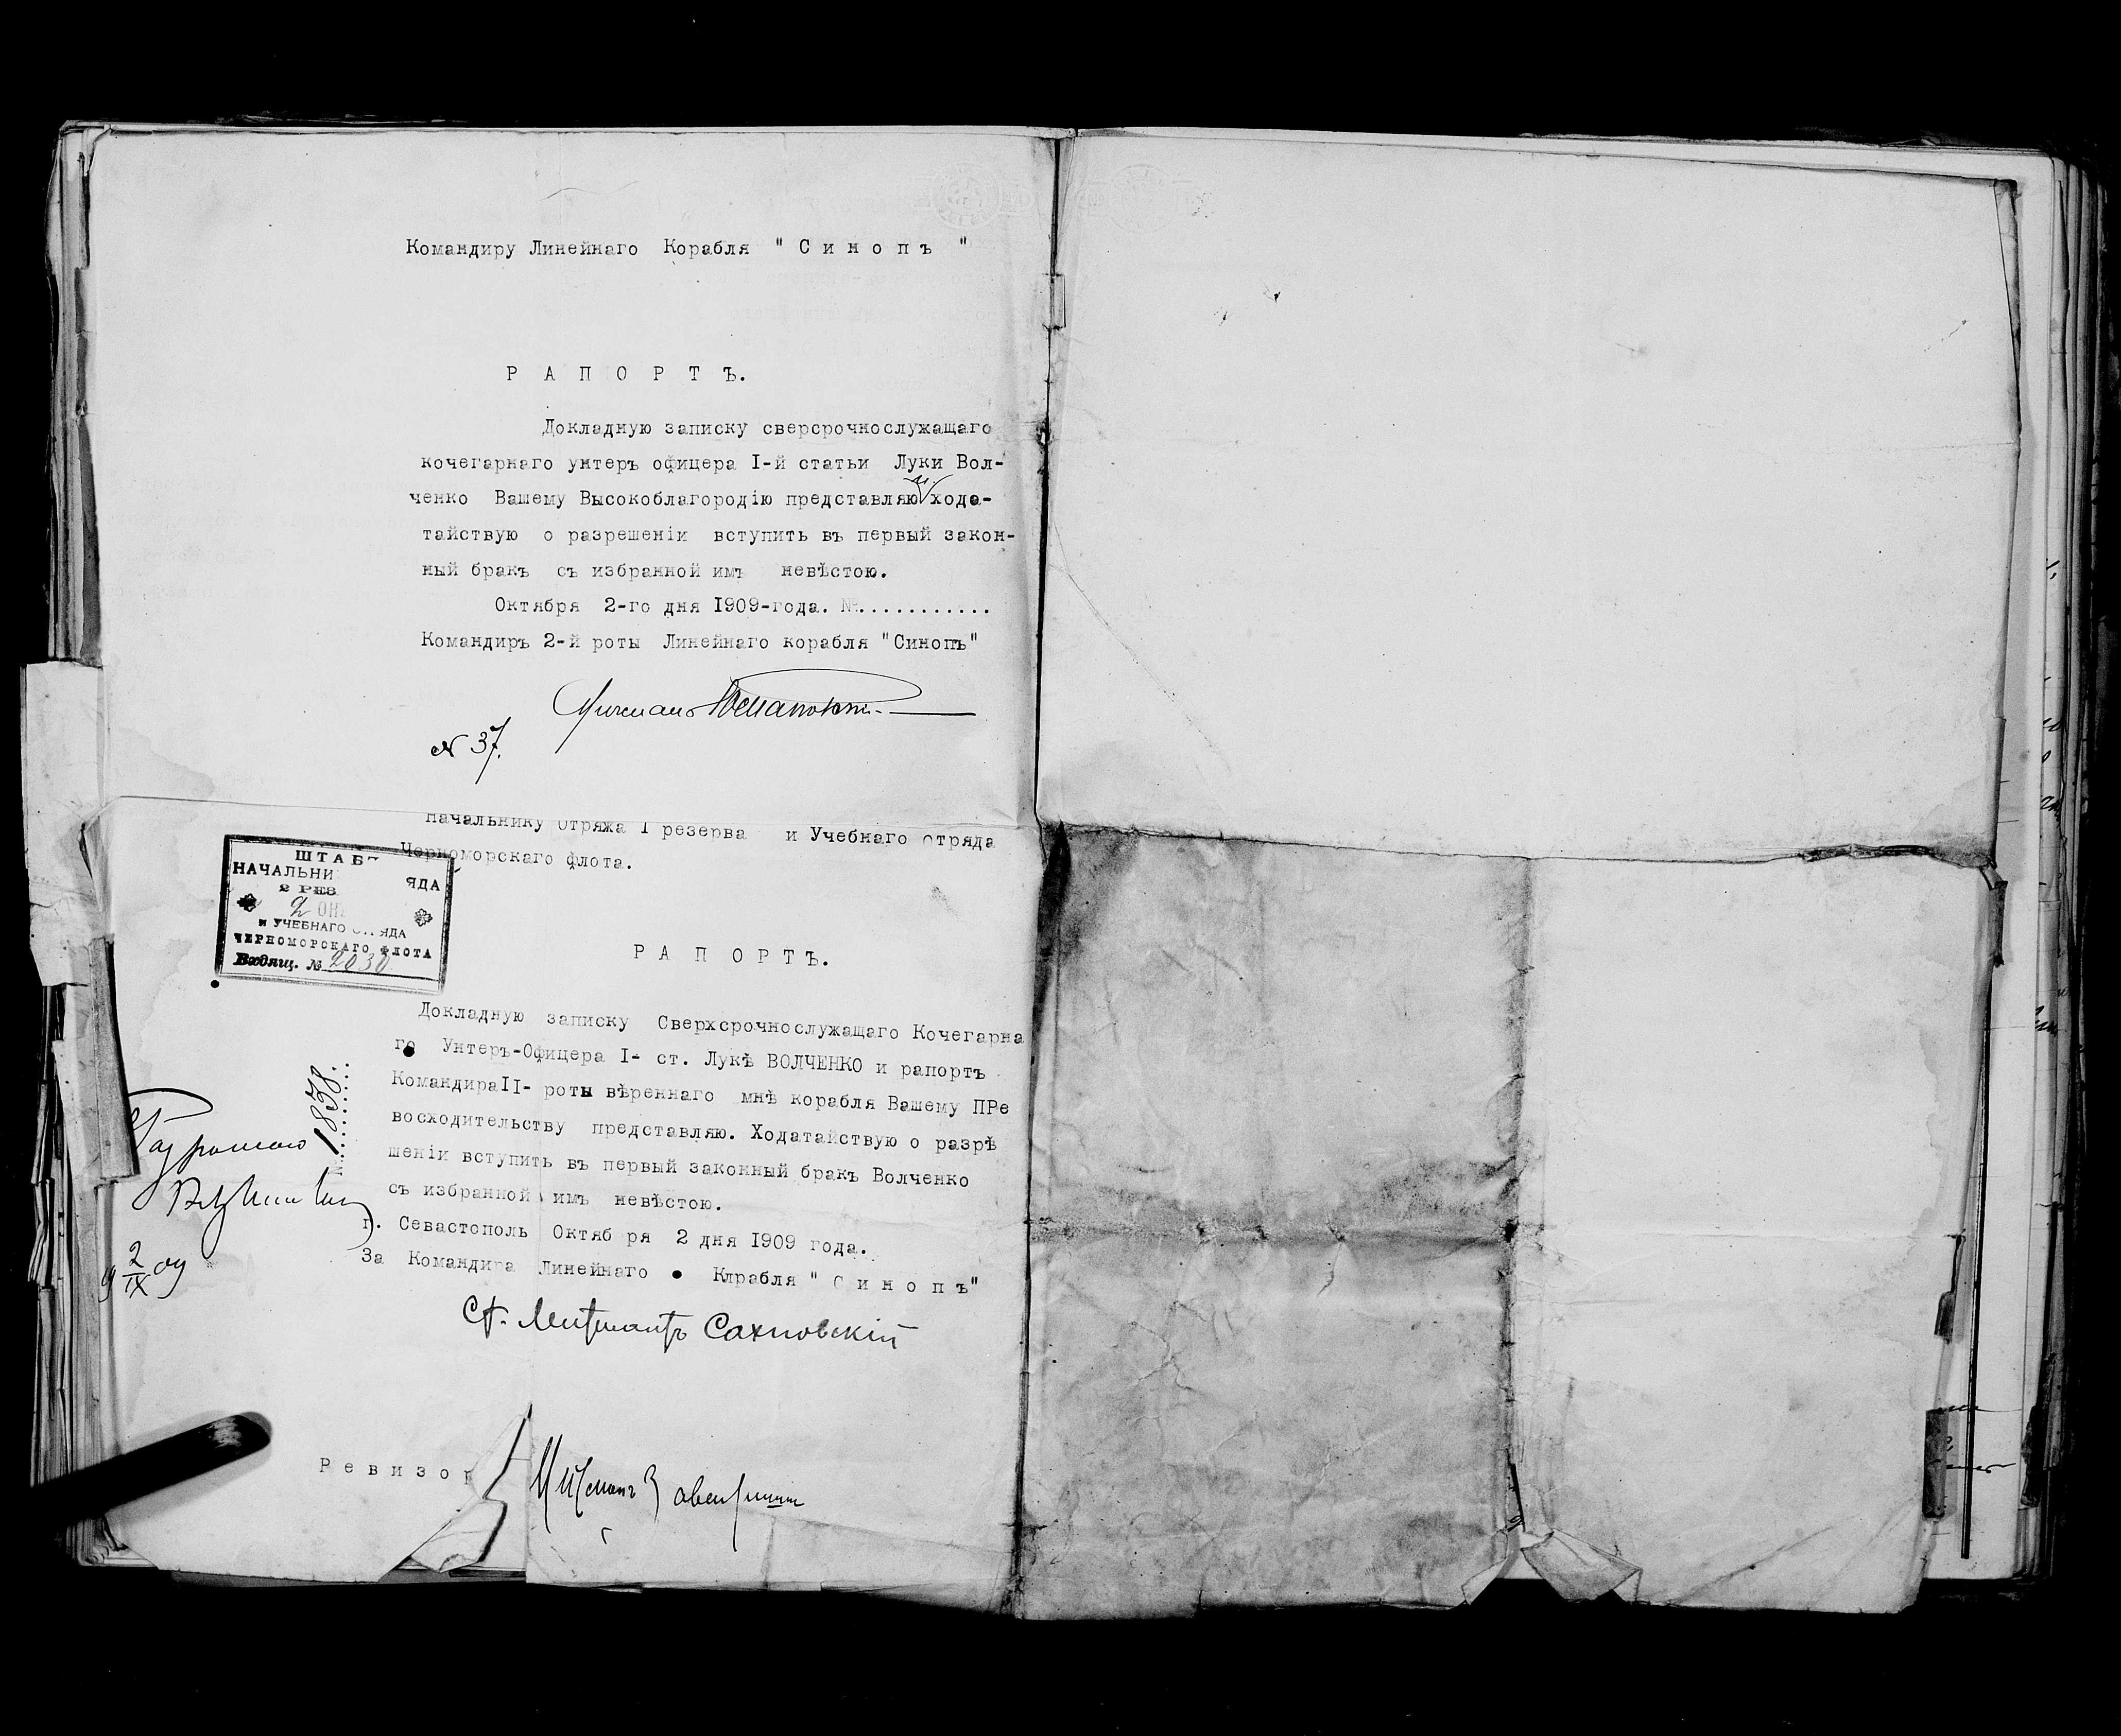 Командиру Линейнаго Корабля " С и н о п ъ "
Р А П О Р Т Ъ.
Докладную записку сверсрочнослужащаго
кочегарнаго унтеръ офицера I-й статьи Луки Вол-
ченко Вашему Высокоблагородію представляю и хода-
тайствую о разрешеніи вступить въ первый закон-
ный бракъ съ избранной имъ невѣстою.
Октября 2-го дня 1909-года. №............
Командиръ 2-й роты Линейнаго корабля "Синопъ"
Мичманъ
№ 37.
Начальнику Отряжа I резерва и Учебнаго отряда
Черноморскаго флота.
ШТАБЪ
НАЧАЛЬНИ ЯДА
2 РЕЗ
2 ОК
и УЧЕБНАГО ОТРЯДА
ЧЕРНОМОРСКАГО ФЛОТА
Входящ. № 2030
Р А П О Р Т Ъ.
Докладную записку Сверхсрочнослужащаго Кочегарна
го Унтеръ-Офицера I- ст. Лукѣ ВОЛЧЕНКО и рапортъ
Командира II- роты вѣреннаго мнѣ корабля Вашему ПРе
восходительству представляю. Ходатайствую о разрѣ
шеніи вступить въ первый законный бракъ Волченко
съ избранной имъ невѣстою.
№ 1838.
Разрѣшаю
2/IX 09
г. Севастополь Октяб ря 2 дня 1909 года.
За Командира Линейнаго Клрабля " С и н о п ъ"
Ст. Лейтенантъ Сахновскій
Р е в и з о р
Мичманъ